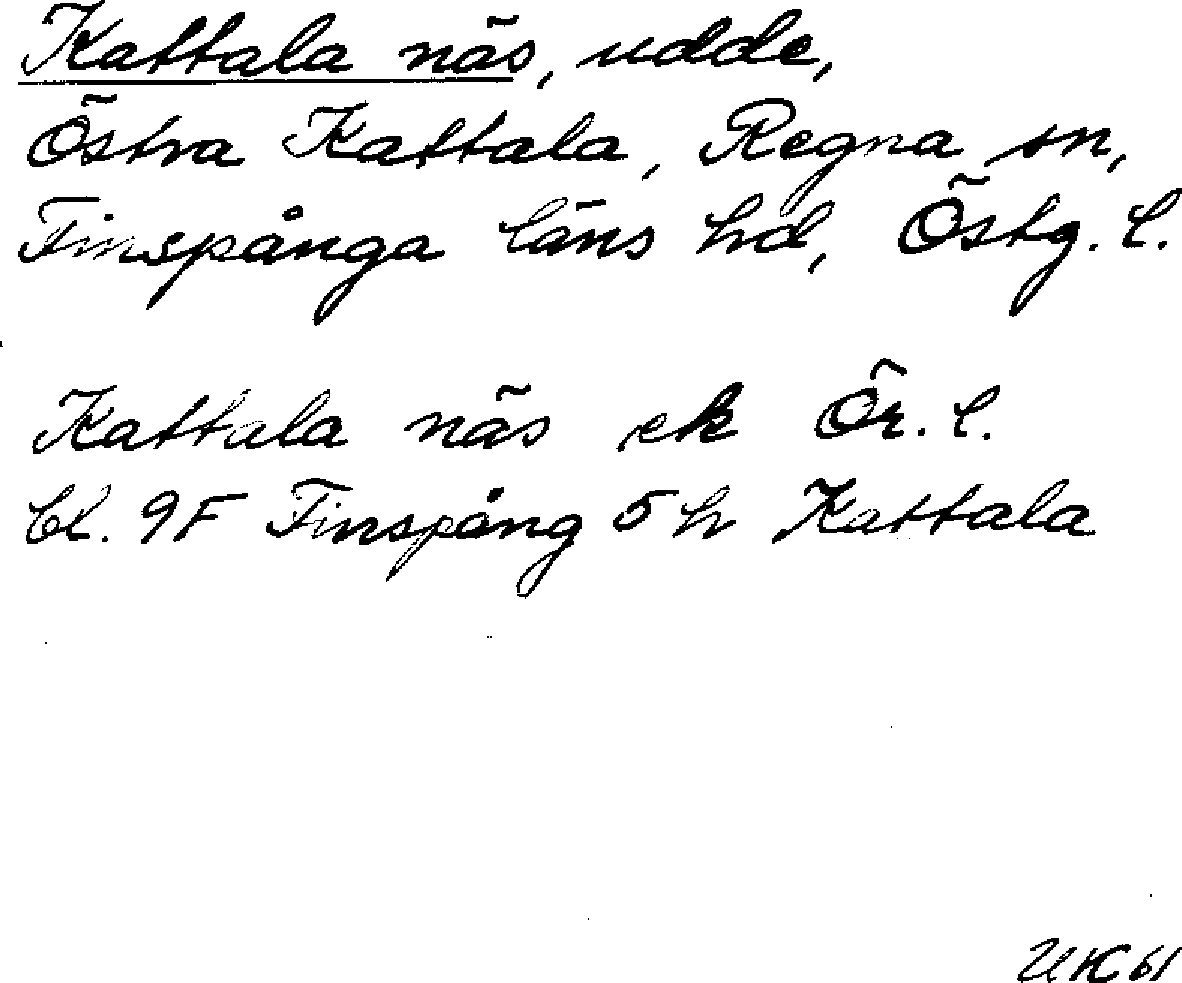 Kattala näs, udde,
Östra Kattala, Regna sn,
Finspånga läns hd, Östg. l.
Kattala näs ek Ör. l.
bl. 9F Finspång 5h Kattala